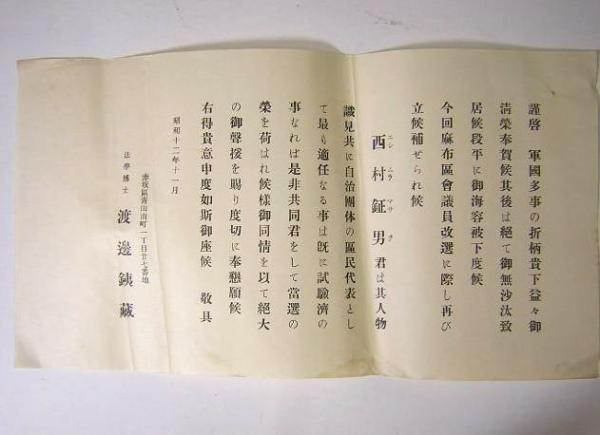 謹啓　軍國多事の折柄貴下益々御
淸榮奉賀候其後は絕て御無沙汰致
居候段平に御海容被下度候
今回麻布區會議員改選に際し再び
立候補せられ候
西村鉦男君は其人物
ニシ ムラ マサ ヲ
識見共に自治團体の區民代表とし
て最も適任なる事は旣に試驗濟の
事なれば是非共同君をして當選の
榮を荷はれ候樣御同情を以て絕大
の御聲援を賜り度切に奉懇願候
右得貴意申度如斯御座候　敬具
昭和十二年十一月
赤坂區靑山南町一丁目廿七番地
法學博士　渡邊銕藏